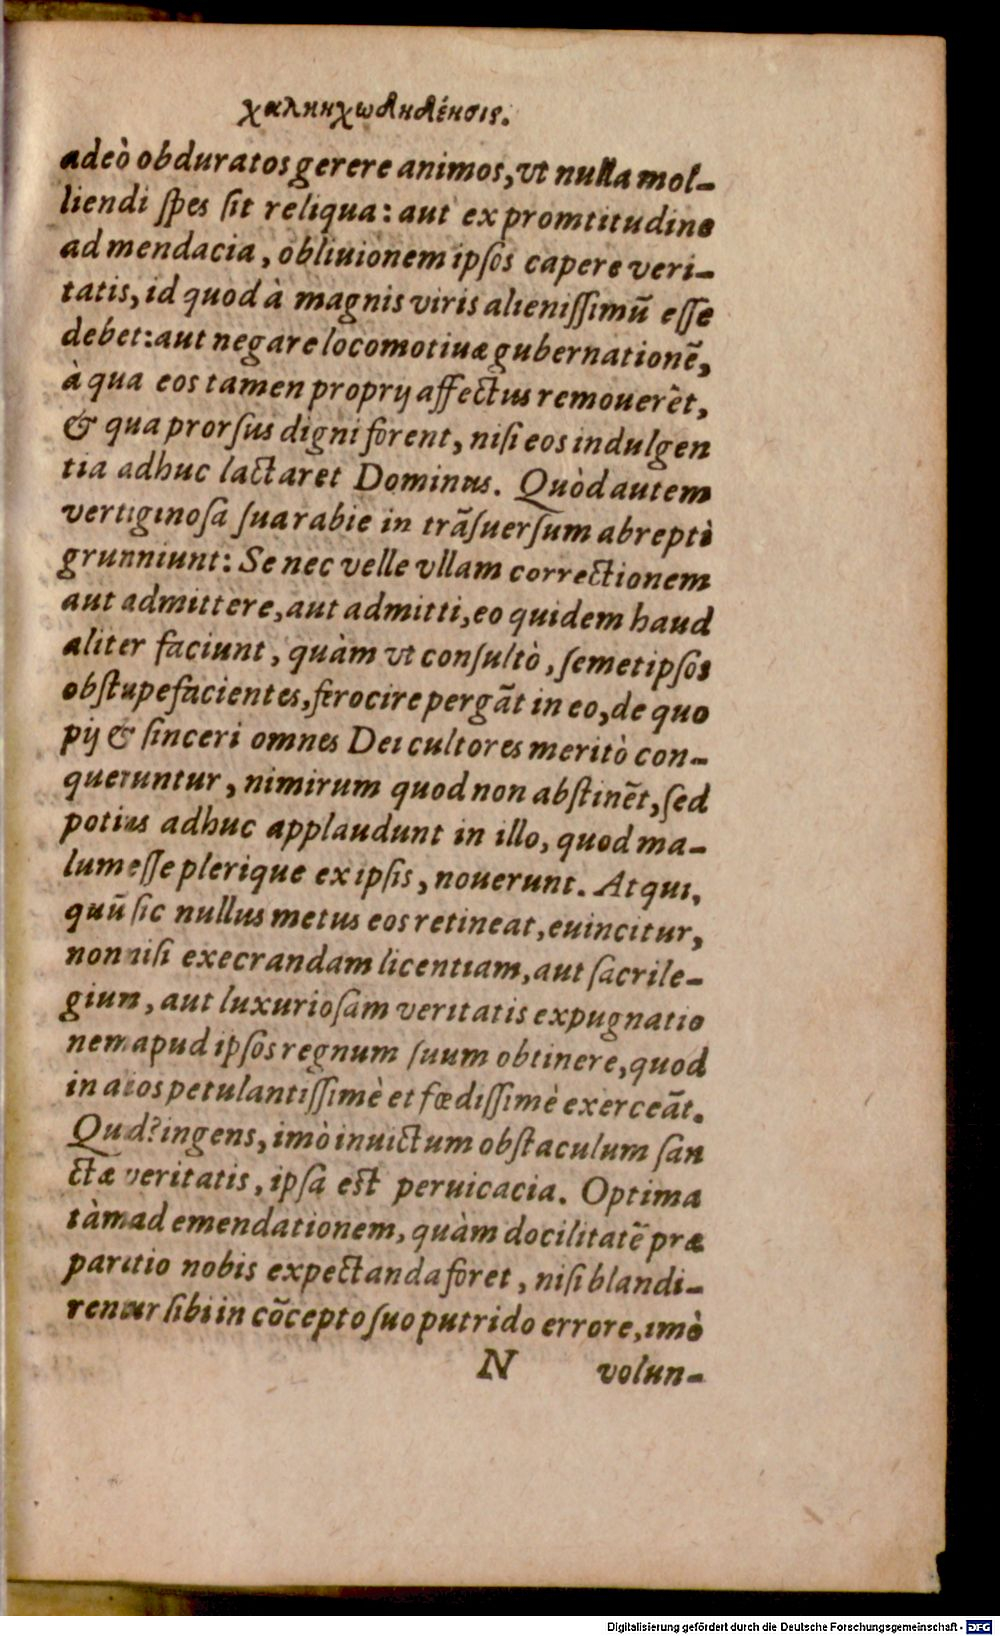 adeò obduratos gerere animos, vt nulla mol-
liendi ſpes ſit reliqua: aut ex promtitudine
ad mendacia, obliuionem ipſos capere veri-
tatis, id quod à magnis viris alieniſſimū eſſe
debet: aut negare locomotiuæ gubernationē,
à qua eos tamen proprij affectus remouerēt,
& qua prorſus digni forent, niſi eos indulgen
tia adhuc lactaret Dominus. Quòd autem
vertiginoſa ſua rabie in trāſuerſum abrepti
grunniunt: Se nec velle vllam correctionem
aut admittere, aut admitti, eo quidem haud
aliter faciunt, quàm vt conſultò, ſemetipſos
obſtupefacientes, ferocire pergāt in eo, de quo
pij & ſinceri omnes Dei cultores meritò con-
queruntur, nimirum quod non abſtinēt, ſed
potius adhuc applaudunt in illo, quod ma-
lum eſſe plerique ex ipſis, nouerunt. At qui,
quū ſic nullus metus eos retineat, euincitur,
non niſi execrandam licentiam, aut ſacrile-
gium, aut luxurioſam veritatis expugnatio
nem apud ipſos regnum ſuum obtinere, quod
in alios petulantiſſimè et fœdiſſimè exerceāt.
Quid? ingens, imò inuictum obſtaculum ſan
ctæ veritatis, ipſa eſt peruicacia. Optima
tàm ad emendationem, quàm docilitatē præ
paratio nobis expectanda foret, niſi blandi-
rentur ſibi in cōcepto ſuo putrido errore, imò
N volun-
Digitalisierung gefördert durch die Deutsche Forschungsgemeinschaft - DFG